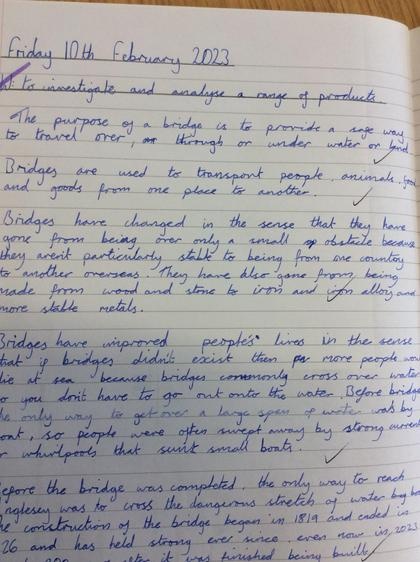 Friday 10th February 2023
to investigate and analyse a range of products.
The purpose of a bridge is to provide a safe way
to travel over, through or under water or land
Bridges are used to transport people, animals, food
and goods from one place to another.
Bridges have changed in the sense that they have
gone from being over only a small obstacle because
they aren't particularly stable to being from one country
to another overseas. They have also gone from being
made from wood and stone to iron and iron alloy and
more stable metals.
Bridges have improved people's lives in the sense
that if bridges didn't exist then more people would
die at sea because bridges commonly cross over water
so you don't have to go out onto the water. Before bridges
the only way to get over a large span of water was by
boat, so people were often swept away by strong currents
or whirlpools that sunk small boats.
Before the bridge was completed, the only way to reach
Anglesey was to cross the dangerous stretch of water by boat
the construction of the bridge began in 1819 and ended in
26 and has held strong ever since, even now in 2023
after it was finished being built